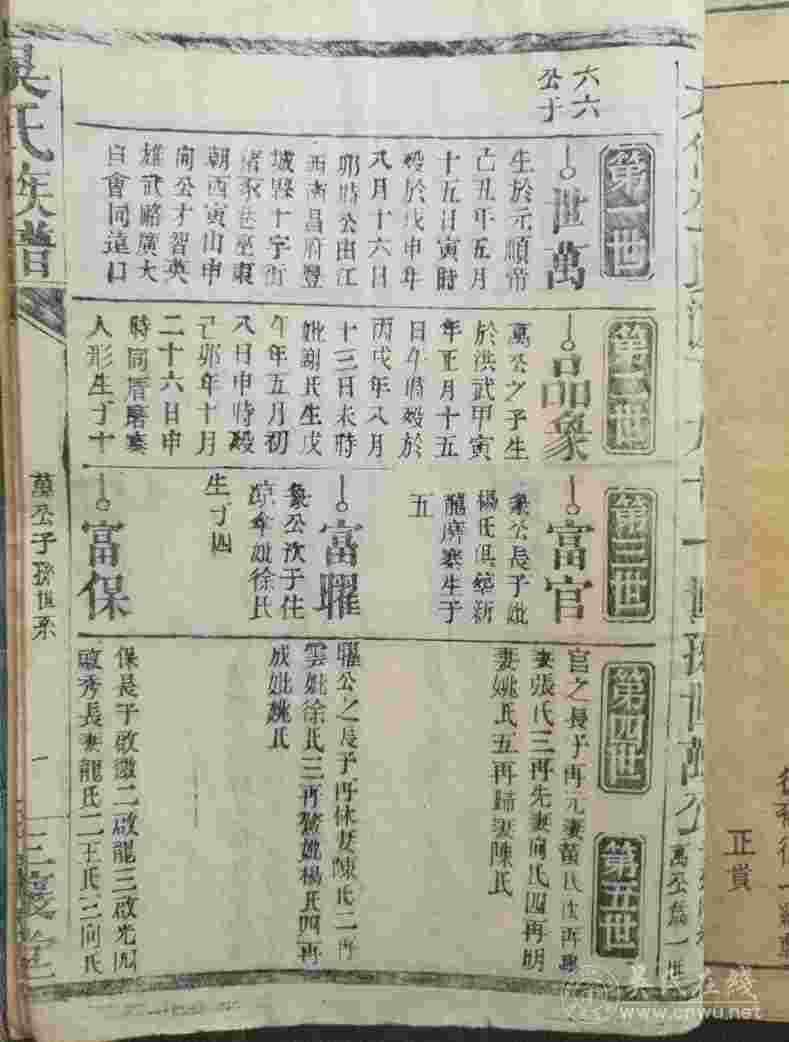 六六
公子
第一世
世萬
生於元順帝
己丑年五月
十五日寅時
歿於戊申年
八月十六日
卯時公由江
西南昌府豐
城縣十字街
朝西寅山申
向公才智英
雄武略廣大
自會同遠口
第二世
品象
萬公之子生
於洪武甲寅
年正月十五
日午時歿於
丙戌年八月
十三日未時
妣謝氏生戊
午年五月初
八日申時歿
己卯年十月
二十六日申
時同厝
人形生子十
第三世
富官
象公長子妣
楊氏俱塟新
龍唐寨生子
五
富曜
象公次子住
涼傘妣徐氏
生子四
富保
第四世
第五世
官之長子再元妻黄氏次再興
妻張氏三再先妻向氏四再明
妻姚氏五再歸妻陳氏
曜公之長子再休妻陳氏二再
雲妣徐氏三再 妣楊氏四再
成妣姚氏
保長子啟 二啟龍三啟光四
啟秀長妻龍氏二王氏三向氏
吳氏族譜
萬公子孫世系
一
三讓堂
世孫世萬公
萬公為一世
正賞
吳氏在线
www.cnwu.net